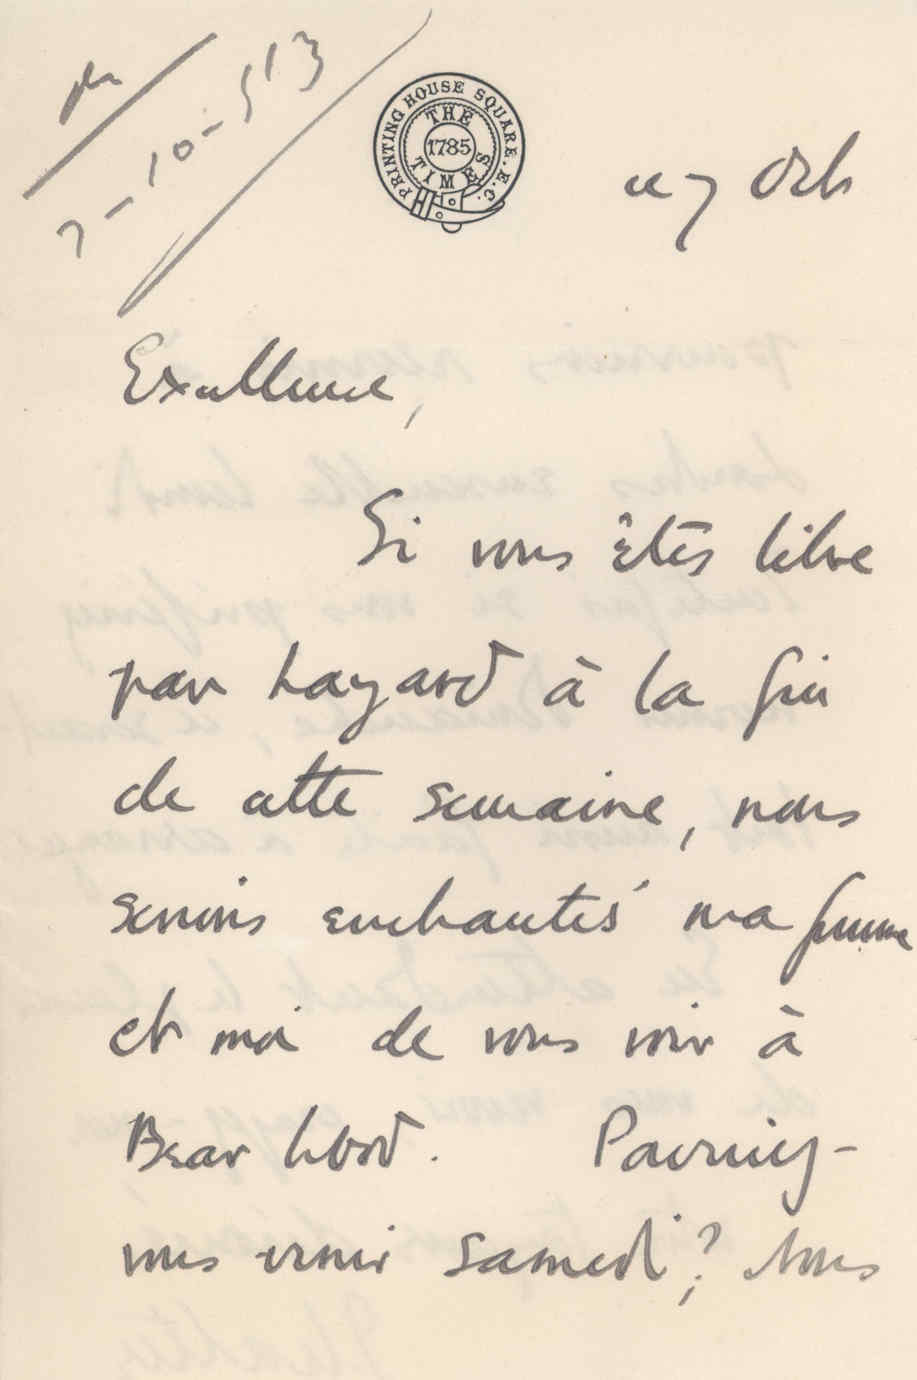 7-10-913
PRINTING HOUSE SQUARE. E.C.
THE
1785
TIMES
ce 7 Octb
Excellence,
Si vous êtes libre
par hazard à la fin
de cette semaine, nous
serions enchantés ma femme
et moi de vous voir à
Bear Wood. Pourriez-
vous venir samedi? Nous